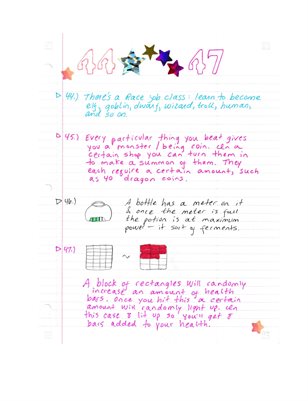 44 47
44.) There's a Race job class: learn to become
elf, goblin, dwarf, wizard, troll, human,
and so on.
45.) Every particular thing you beat gives
you a monster/being coin. In a
certain shop you can turn them in
to make a summon of them. They
each require a certain amount, such
as 40 dragon coins.
46.) A bottle has a meter on it
& once the meter is full
the potion is at maximum
power - it sort of ferments.
47.)
A block of rectangles will randomly
increase an amount of health
bars. Once you hit this a certain
amount will randomly light up. In
this case 8 lit up so you'll get 8
bars added to your health.